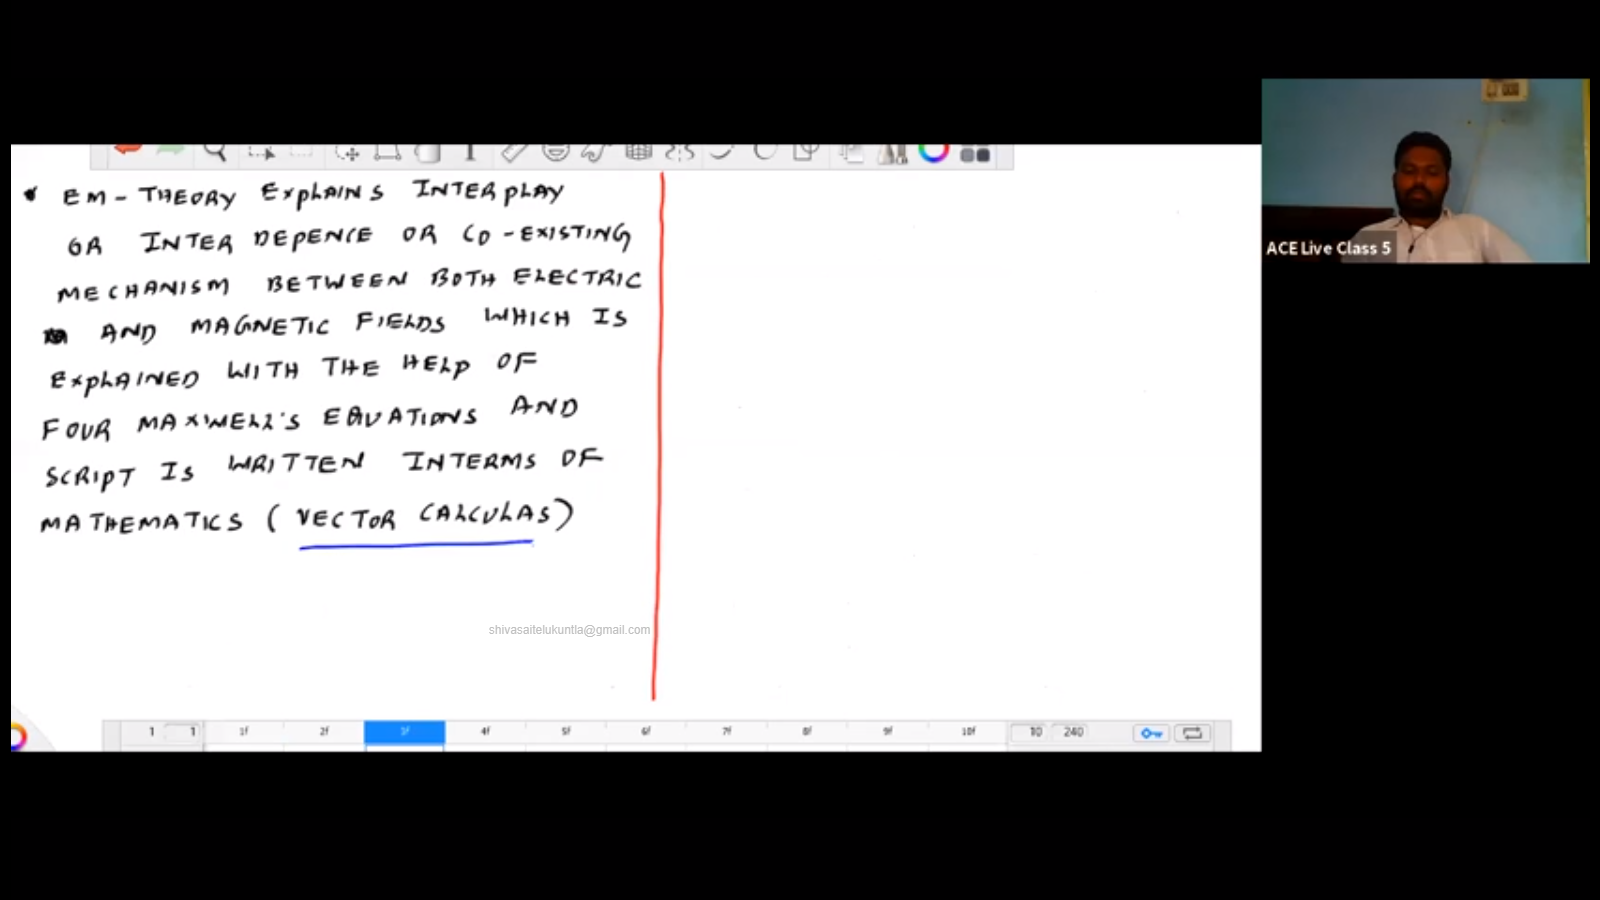 EM-THEORY EXPLAINS INTERPLAY
OR INTER DEPENCE OR CO-EXISTING
MECHANISM BETWEEN BOTH ELECTRIC
AND MAGNETIC FIELDS WHICH IS
EXPLAINED WITH THE HELP OF
FOUR MAXWELL'S EQUATIONS AND
SCRIPT IS WRITTEN INTERMS OF
MATHEMATICS (VECTOR CALCULAS)
shivasaitelukuntla@gmail.com
ACE Live Class 5
1 1 1f 2f 3f 4f 5f 6f 7f 8f 9f 10f 10 240